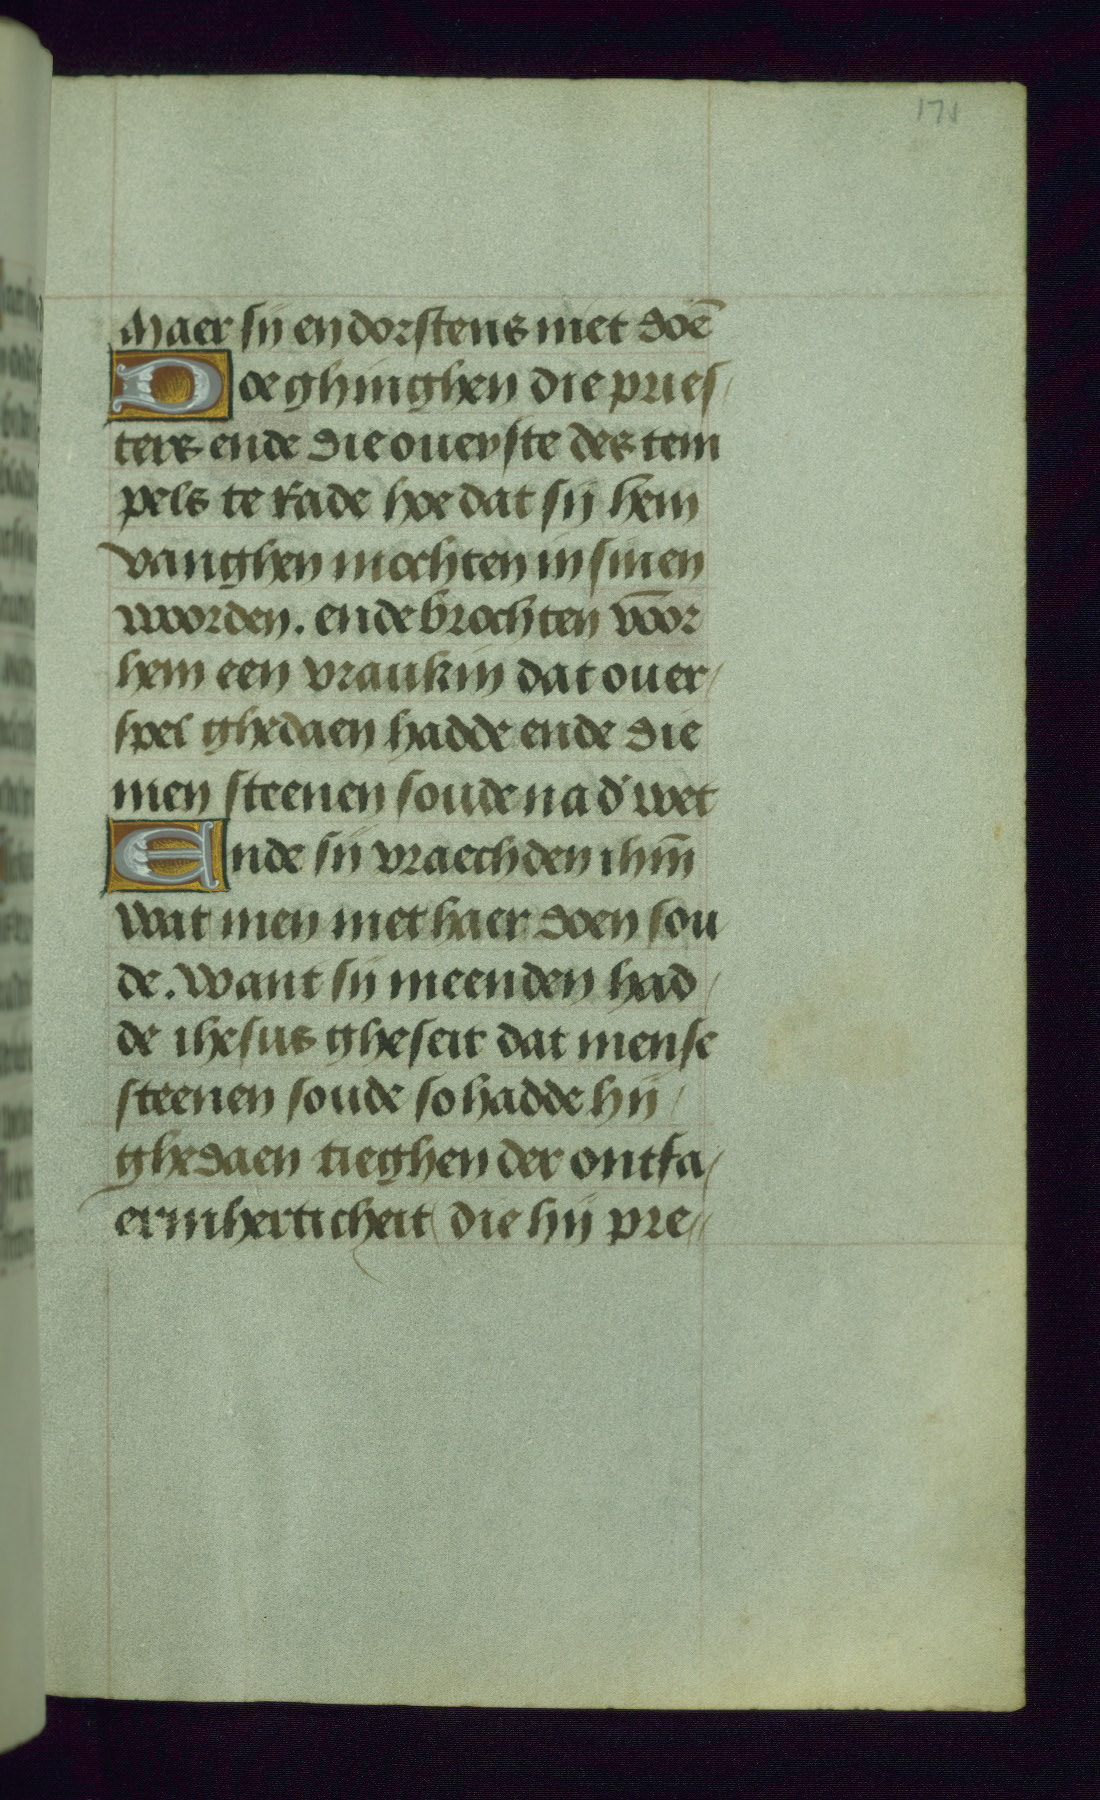 171
Maer sij en dorstens niet doē
Doe ghinghen die pries/
ters ende die ouerste des tem
pels te rade hoe dat sij hem
vanghen mochten in sinen
woorden. ende brochten vōor
hem een vraukin dat ouer/
spel ghedaen hadde ende die
men steenen soude na d' wet
Ende sij vraechden ihm̄
wat men met haer doen sou
de. Want sij meenden had/
de ihesus gheseit dat mense
steenen soude so hadde hij/
ghedaen tieghen der ontfa/
ermherticheit die hij pre//